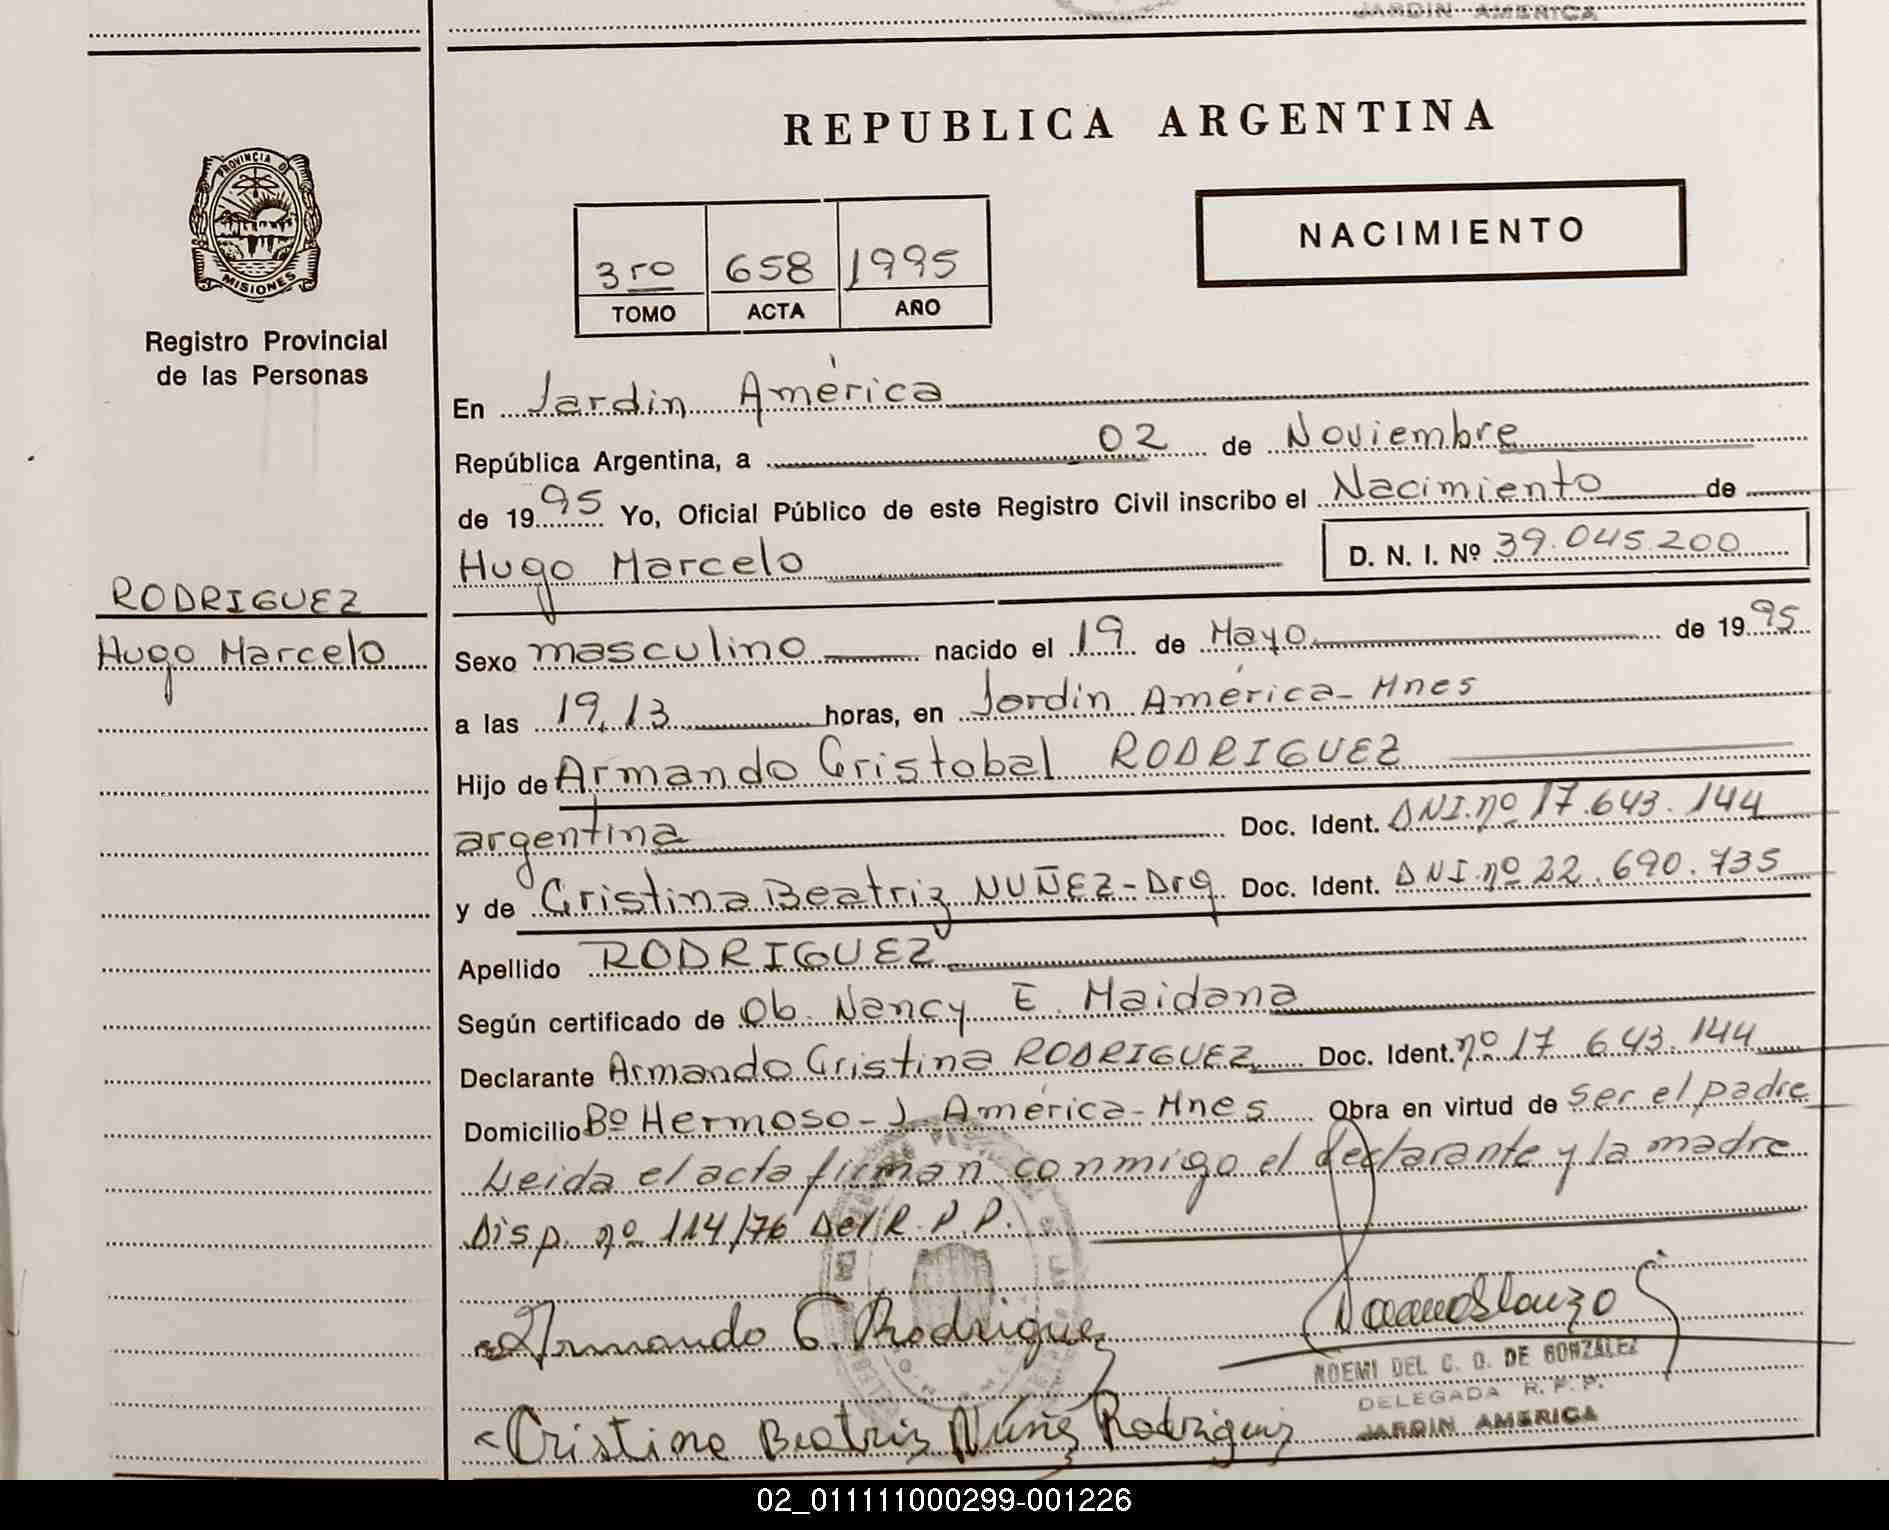 JARDIN AMERICA
REPUBLICA ARGENTINA
PROVINCIA DE
MISIONES
Registro Provincial
de las Personas
3ro 658 1995
TOMO ACTA AÑO
NACIMIENTO
En Jardín América
República Argentina, a 02 de Noviembre
de 1995 Yo, Oficial Público de este Registro Civil inscribo el Nacimiento de
Hugo Marcelo D. N. I. Nº 39.045.200
RODRIGUEZ
Hugo Marcelo
Sexo masculino nacido el 19 de Mayo de 1995
a las 19,13 horas, en Jardín América - Mnes
Hijo de Armando Cristobal RODRIGUEZ
argentina Doc. Ident. DNI.nº 17.643.144
y de Cristina Beatriz NUÑEZ - Arg Doc. Ident. DNI.nº 22.690.735
Apellido RODRIGUEZ
Según certificado de Ob. Nancy E. Maidana
Declarante Armando Cristina RODRIGUEZ Doc. Ident. nº 17 643.144
Domicilio Bº Hermoso - J. América - Mnes Obra en virtud de ser el padre
Leida el acta firman conmigo el declarante y la madre
Disp. nº 114/76 Del R.P.P.
Armando C. Rodriguez
NOEMI DEL C. O. DE GONZALEZ
DELEGADA R. P. P.
JARDIN AMERICA
Cristina Beatriz Núñez Rodriguez
02_011111000299-001226